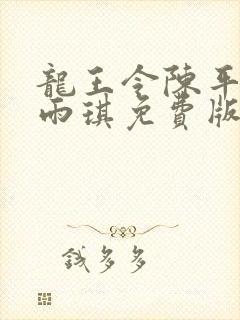 龍王令陳平
雨琪免費版
錢多多